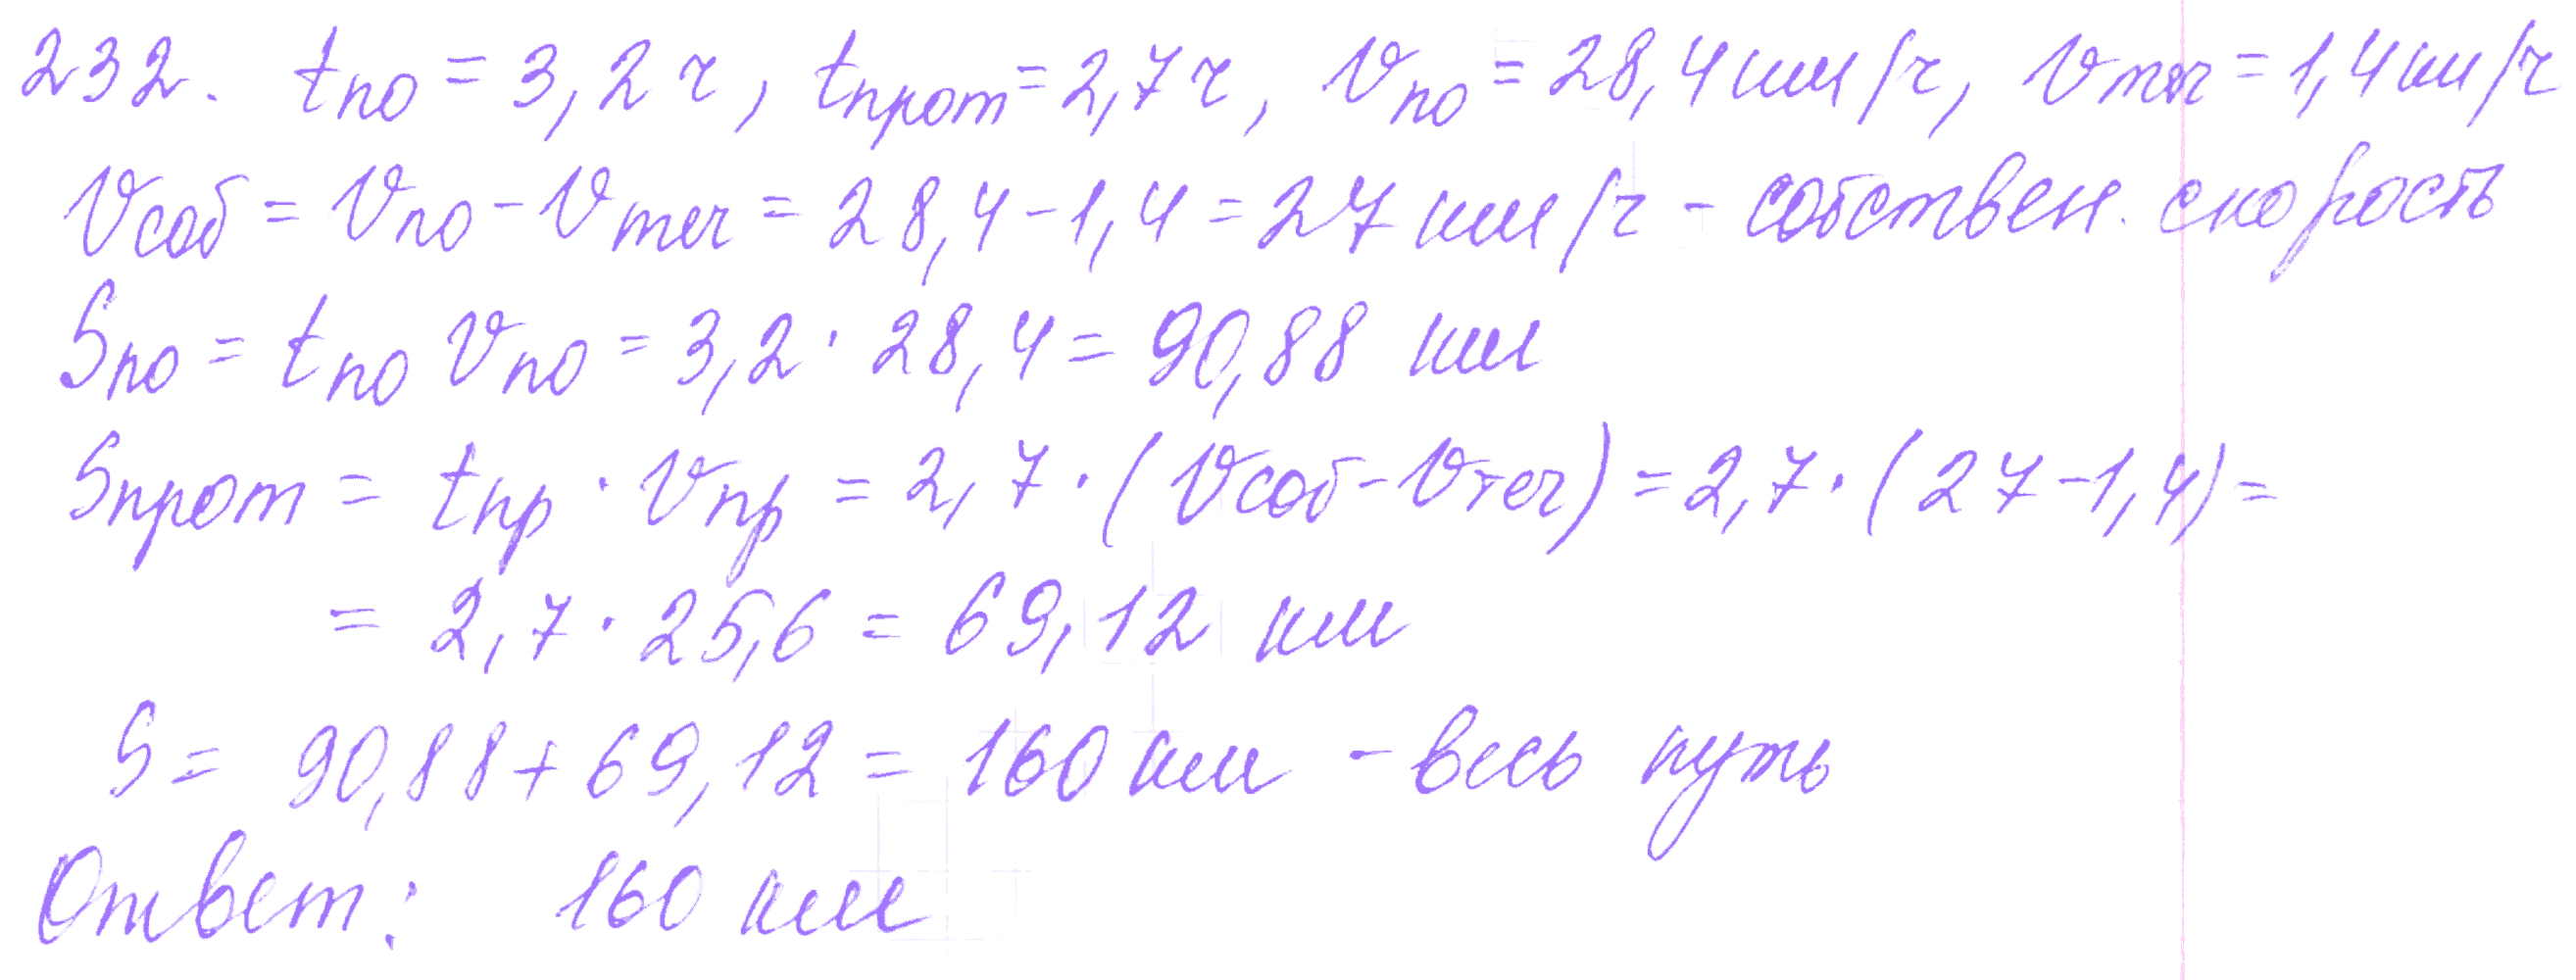 232. tпо = 3,2 ч, tпрот = 2,7 ч, Vпо = 28,4 км/ч, Vтеч = 1,4 км/ч
Vсоб = Vпо - Vтеч = 28,4 - 1,4 = 27 км/ч - собствен. скорость
Sпо = tпо Vпо = 3,2 · 28,4 = 90,88 км
Sпрот = tпр · Vпр = 2,7 · (Vсоб - Vтеч) = 2,7 · (27 - 1,4) =
= 2,7 · 25,6 = 69,12 км
S = 90,88 + 69,12 = 160 км - весь путь
Ответ: 160 км